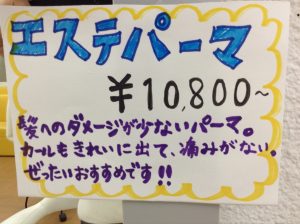 エステパーマ
￥10,800~
髪へのダメージが少ないパーマ。
カールもきれいに出て、痛みがない。
ぜったいおすすめです!!